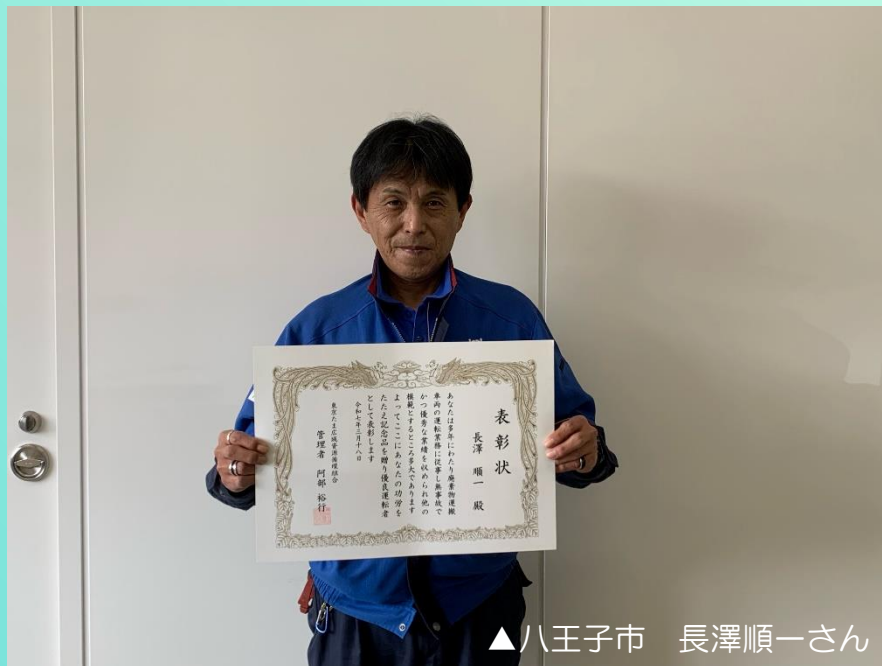 表彰状
長澤 順一 殿
あなたは多年にわたり廃棄物運搬
車両の運転業務に従事し無事故で
かつ優秀な業績を収められ他の
模範とするところ多大であります
よってここにあなたの功労を
たたえ記念品を贈り優良運転者
として表彰します
令和七年三月十八日
東京たま広域資源循環組合
管理者 阿部 裕行
▲八王子市 長澤順一さん